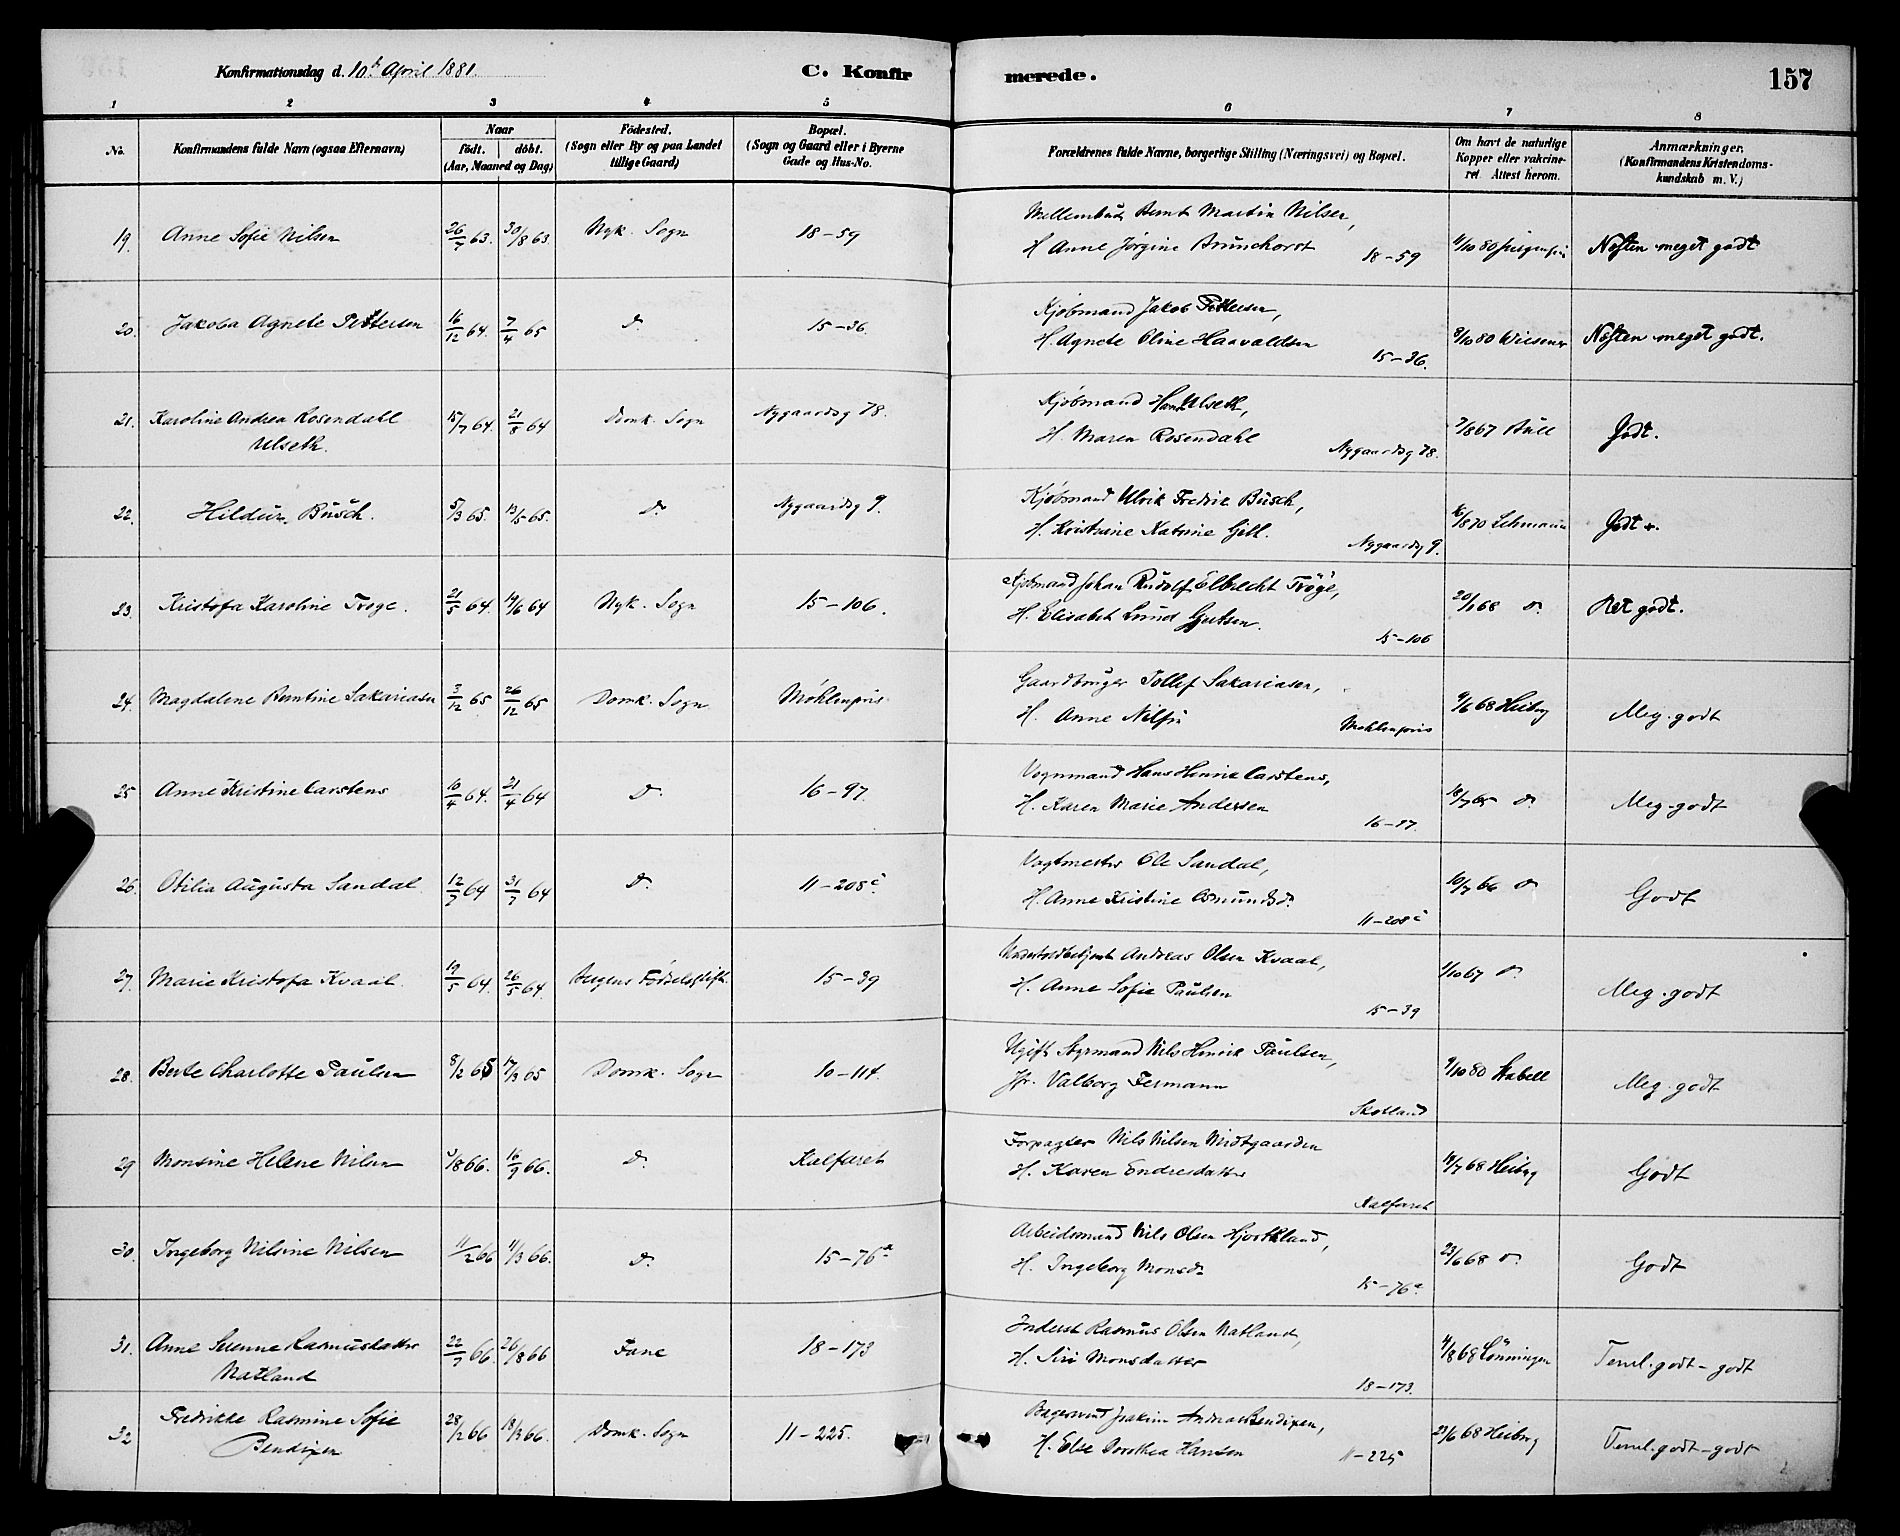 Konfirmationsdag d. 10de April 1881.
C. Konfirmerede.
157
1 2 3 4 5 6 7 8
No.
Konfirmandens fulde Navn (ogsaa Efternavn)
Naar
födt. döbt.
(Aar, Maaned og Dag)
Födested.
(Sogn eller By og paa Landet
tillige Gaard)
Bopæl.
(Sogn og Gaard eller i Byerne
Gade og Hus-No.
Forældrenes fulde Navne, borgerlige Stilling (Næringsvei) og Bopæl.
Om havt de naturlige
Kopper eller vakcine-
ret. Attest herom.
Anmærkninger.
(Konfirmandens Kristendoms-
kundskab m. V.)
19. Anne Sofie Nilsen 26/7 63. 30/8 63. Nyk. Sogn 18-59
Bernt Martin Nilsen,
H. Anne Jørgine Brunchorst 18-59
Næsten meget godt
20. Jakoba Agnete Pettersen 16/12 64. 7/4 65 Do. 15-36.
Kjøbmand Jakob Pettersen,
H. Agnete Oline Haavaldsen 15-36.
8/10 80 Wiesener Næsten meget godt.
21. Karoline Andrea Rosendahl
Ulseth. 15/7 64. 21/8 64 Domk. Sogn Nygaardsg 78.
Kjøbmand Hans Ulseth,
H. Maren Rosendahl Nygaardsg 78.
7/8 67 Bull Godt.
22. Hildur Busch. 5/3 65. 13/5 65. Do. Nygaardsg 9.
Kjøbmand Ulrik Fredrik Busch,
H. Kristine Katrine Gill. Nygaardsg 9.
Lehmann Godt +.
23. Kristofa Karoline Troge. 21/5 64. 19/6 64 Nyk. Sogn 15-106.
Kjøbmand Johan Rudolf Elbrecht Tröge,
H. Elisabet Lund Gjertsen. 15-106
20/1 68 Do. Ret godt.
24. Magdalene Berntine Sakariasen 3/12 65 26/12 65 Domk. Sogn Møhlenpris
Gaardbruger Tollef Sakariasen,
H. Anne Nilsen Møhlenpris
9/6 68 Heiberg Meg. godt
25 Anne Kristine Carstens 16/4 64. 21/4 64 Do. 16-97.
Vognmand Hans Henrik Carstens,
H. Karen Marie Andersen 16-97.
18/7 65 Do. Meg. godt
26. Otilia Augusta Sandal 12/7 64 31/7 64 Do. 11-208c.
Vagtmester Ole Sandal,
H. Anne Kristine Asmundsd. 11-208c
10/7 66 Do. Godt
27. Marie Kristofa Kvaal. 19/5 64. 26/5 64. Bergens Fødselsstift. 15-39
Andreas Olsen Kvaal,
H. Anne Sofie Paulsen 15-39
1/10 67 Do. Meg. godt
28. Berte Charlotte Paulsen 8/2 65 17/3 65 Domk. Sogn 10-114.
Ugift Styrmand Nils Henrik Paulsen,
Jfr. Valborg Fermann Skotland
9/10 80 Stabell Meg. godt
29 Monsine Helene Nilsen 16/9 66. Do. Kalfaret
Forpagter Nils Nilsen Midtgaarden
H. Karen Endresdatter Kalfaret
14/7 68 Heiberg Godt
30. Ingeborg Nilsine Nilsen 11/2 66 11/3 66. Do. 15-76a
Arbeidsmand Nils Olsen Hjortland,
H. Ingeborg Monsd. 15-76a
23/6 68 Do. Godt
31. Anne Serine Rasmusdatter
Natland 22/7 66. 26/8 66 Fane 18-173
Inderst Rasmus Olsen Natland,
H. Siri Monsdatter 18-173.
4/8 68 Lønningen Temel. godt-godt
32 Fredrikke Rasmine Sofie
Bendixen 28/2 66 18/3 66. Domk. Sogn 11-225.
Bagersvend Joakim Andreas Bendixen,
H. Else Dorothea Hansen 11-225
23/6 68 Heiberg Temel. godt-godt